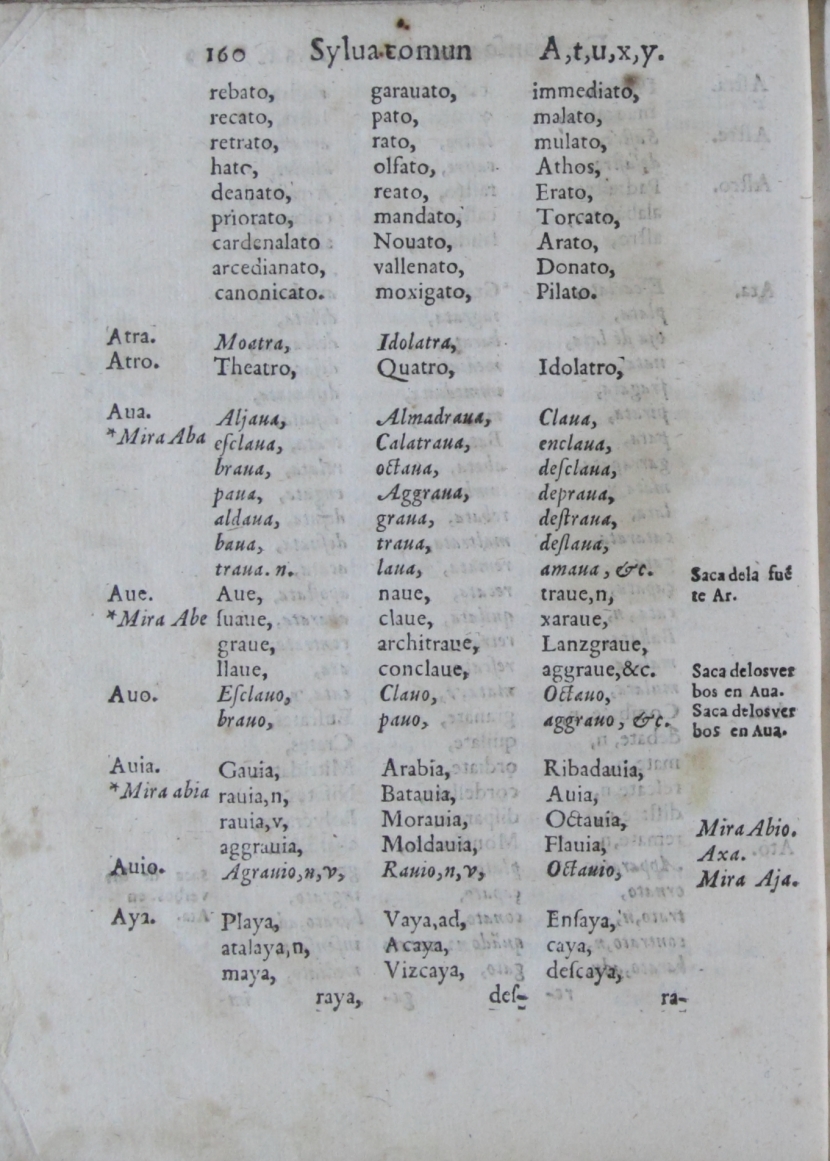 160 Sylua comun A,t,u,x,y.
rebato, garauato, immediato,
recato, pato, malato,
retrato, rato, mulato,
hato, olfato, Athos,
deanato, reato, Erato,
priorato, mandato, Torcato,
cardenalato Nouato, Arato,
arcedianato, vallenato, Donato,
canonicato. moxigato, Pilato.
Atra. Moatra, Idolatra,
Atro. Theatro, Quatro, Idolatro,
Aua. Aljaua, Almadraua, Claua,
*Mira Aba eſclaua, Calatraua, enclaua,
braua, octaua, deſclaua,
paua, Aggraua, depraua,
aldaua, graua, deſtraua,
baua, traua, deſlaua,
traua. n. laua, amaua, &c. Saca dela fuẽ
Aue. Aue, naue, traue,n, te Ar.
*Mira Abe ſuaue, claue, xaraue,
graue, architraue, Lanzgraue,
llaue, conclaue, aggraue,&c. Saca delosver
Auo. Eſclauo, Clauo, Octauo, bos en Aua.
brauo, pauo, aggrauo, &c. Saca delosver
bos en Aua.
Auia. Gauia, Arabia, Ribadauia,
*Mira abia rauia,n, Batauia, Auia,
rauia,v, Morauia, Octauia, Mira Abio.
aggrauia, Moldauia, Flauia, Axa.
Auio. Agrauio,n,v, Rauio,n,v, Octauio, Mira Aja.
Aya. Playa, Vaya,ad, Enſaya,
atalaya,n, Acaya, caya,
maya, Vizcaya, deſcaya,
raya, deſ- ra-